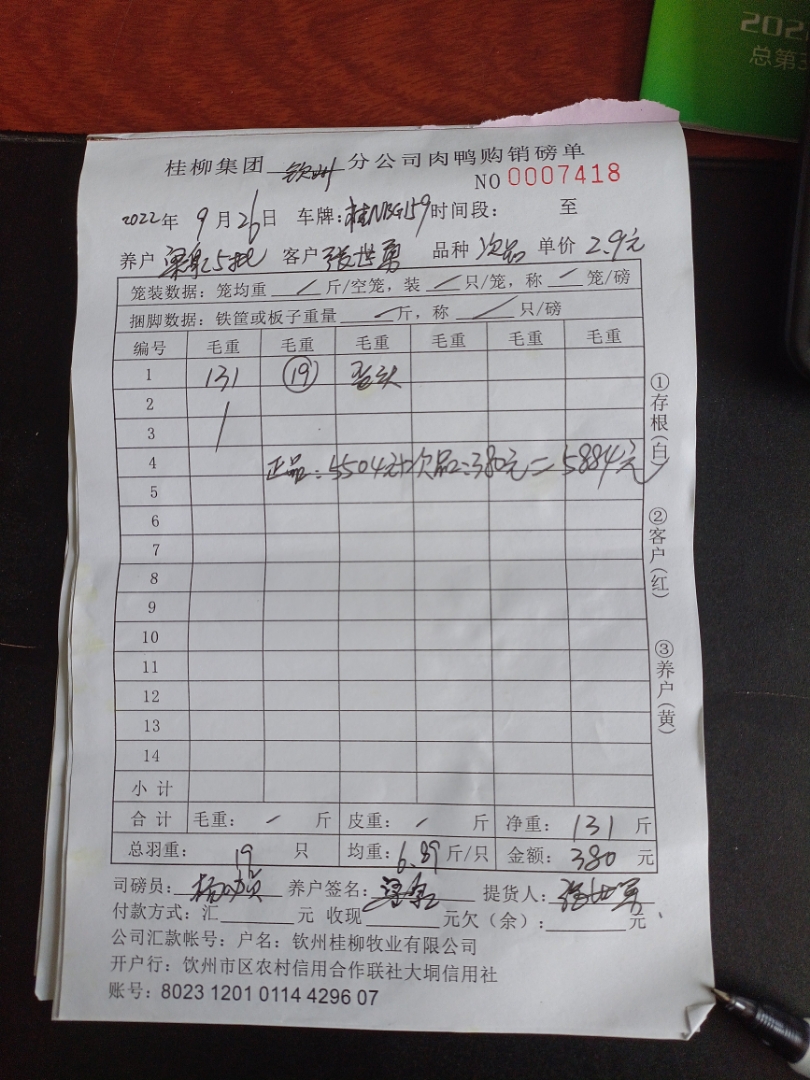 202
总第3
桂柳集团 钦州 分公司肉鸭购销磅单
NO 0007418
2022年 9月26日 车牌:桂NBG159 时间段: 至
养户 5批 客户 张世勇 品种 次品 单价 2.9元
笼装数据: 笼均重 / 斤/空笼, 装 / 只/笼, 称 / 笼/磅
捆脚数据: 铁筐或板子重量 / 斤, 称 / 只/磅
编号 毛重 毛重 毛重 毛重 毛重 毛重
1 131 19
2
3
4 正品:5504元+次品:380元=5884元
5
6
7
8
9
10
11
12
13
14
小计
合计 毛重: / 斤 皮重: / 斤 净重: 131 斤
总羽重: 19 只 均重: 6.89 斤/只 金额: 380 元
司磅员: 养户签名: 提货人: 张世勇
付款方式: 汇 元 收现 元欠(余): 元
公司汇款帐号: 户名: 钦州桂柳牧业有限公司
开户行: 钦州市区农村信用合作联社大垌信用社
账号: 8023 1201 0114 4296 07
①存根(白)
②客户(红)
③养户(黄)